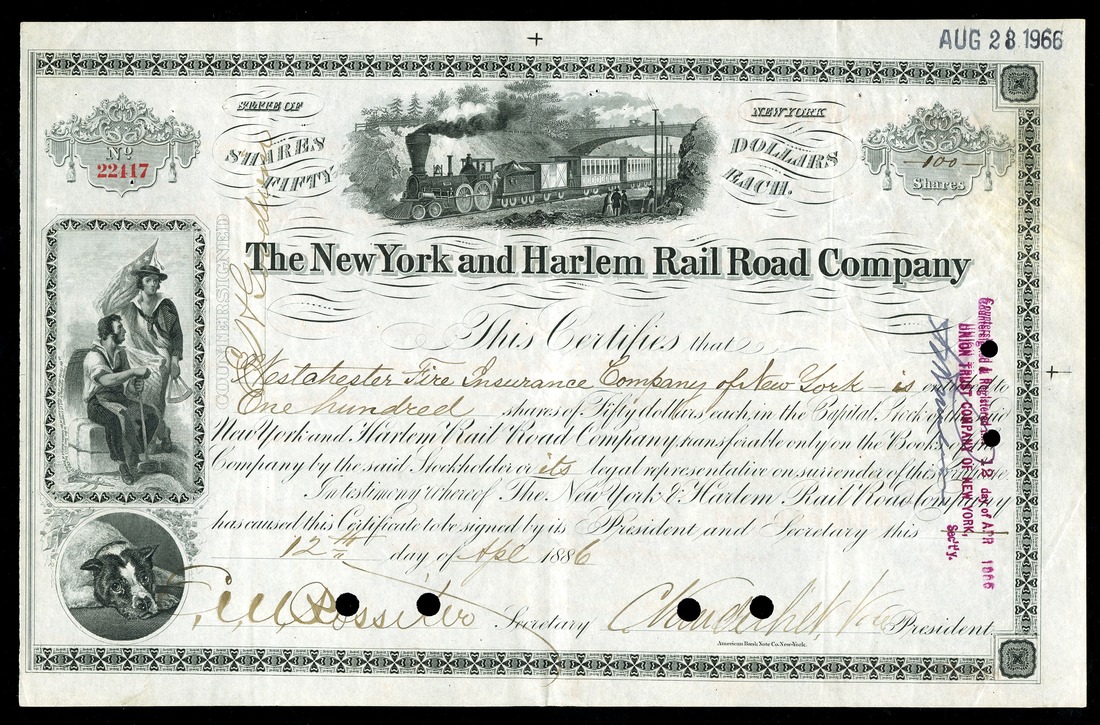 AUG 28 1966
STATE OF NEW YORK
No 22417
SHARES FIFTY DOLLARS EACH.
100 Shares
COUNTERSIGNED
The New York and Harlem Rail Road Company
This Certifies that
Westchester Fire Insurance Company of New York is entitled to
One hundred shares of Fifty dollars each, in the Capital Stock of the
New York and Harlem Rail Road Company, transferable only on the Books of
Company by the said Stockholder or its legal representative on surrender of this
In testimony whereof The New York & Harlem Rail Road Company
has caused this Certificate to be signed by its President and Secretary this
12th day of Apl 1886
E. V. W. Rossiter Secretary C Vanderbilt President
American Bank Note Co. New-York.
Countersigned & Registered this 12 day of APR 1886
UNION TRUST COMPANY OF NEW YORK,
Sect'y.